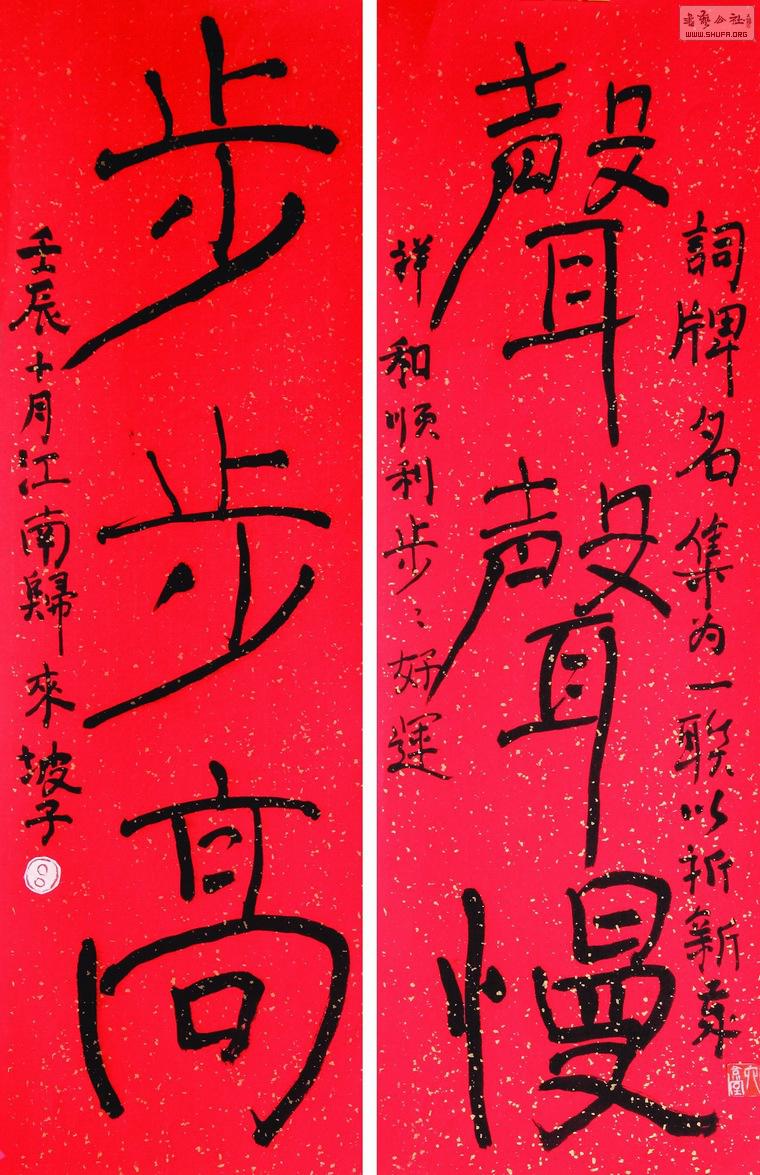 書藝公社
WWW.SHUFA.ORG
詞牌名集为一聯以祈新年
聲聲慢
祥和顺利步〻好運
步步高
壬辰十月江南歸來坡子